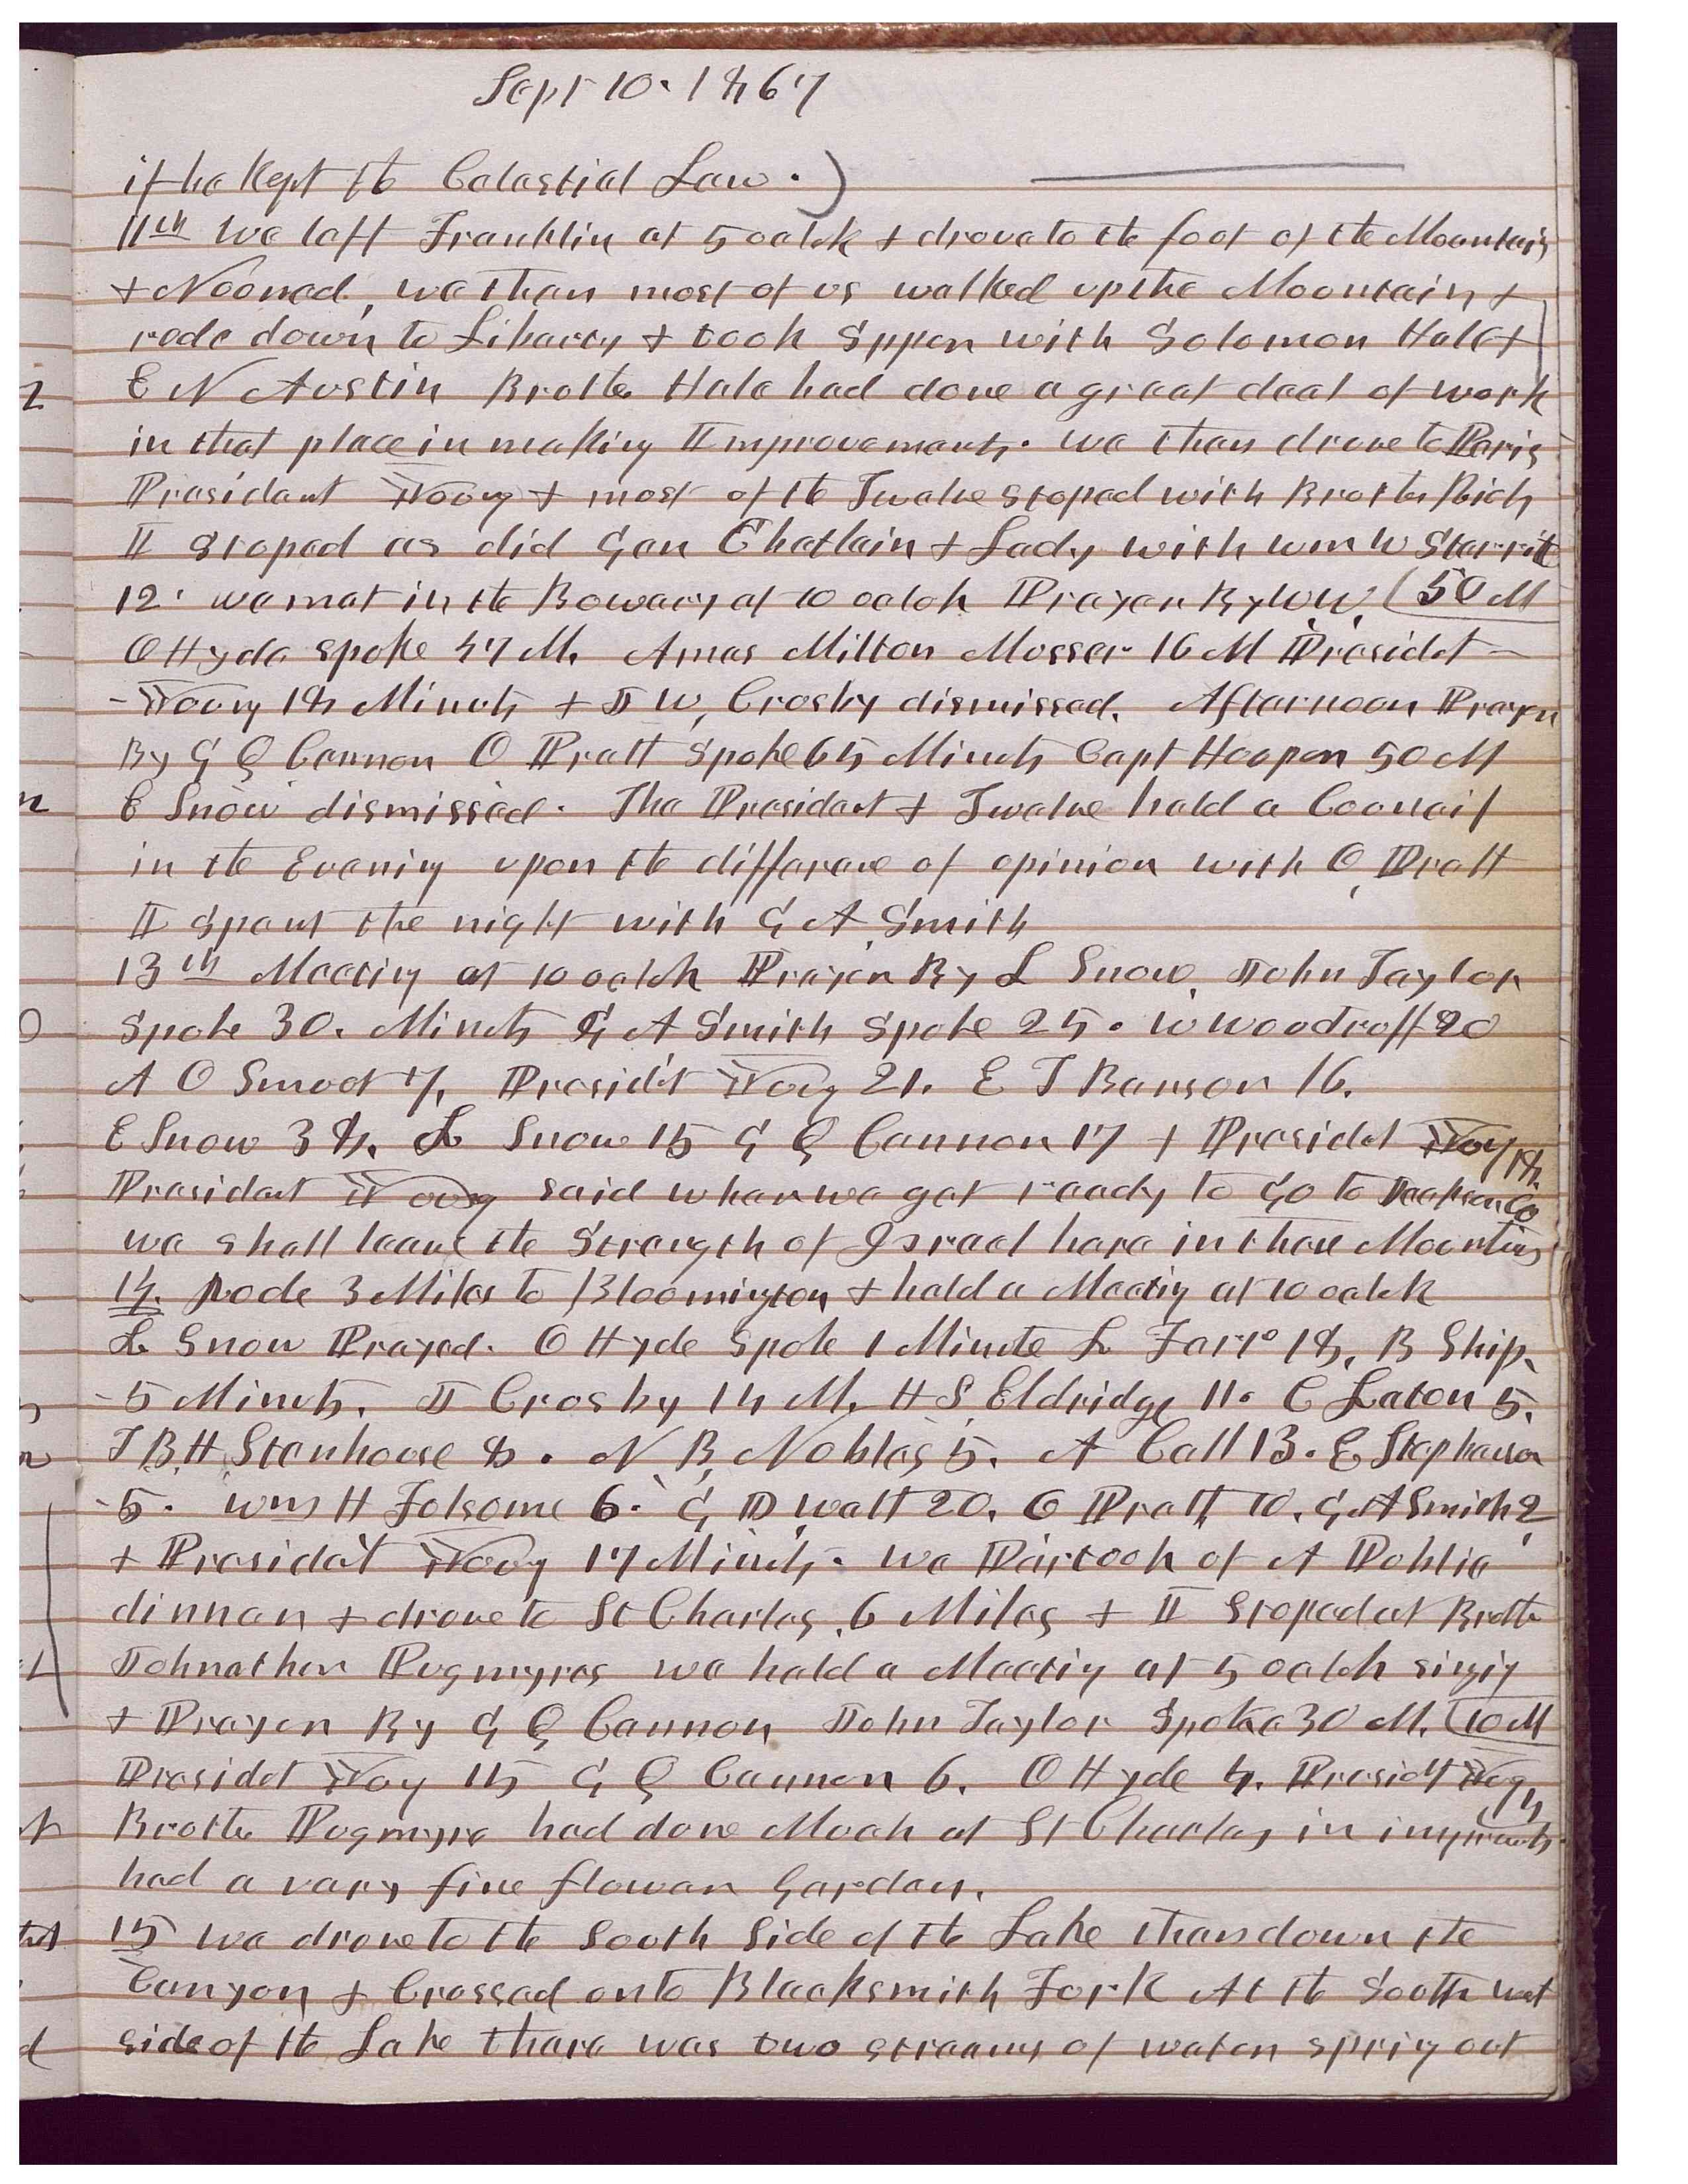 Sept 10. 1867
if he kept the Celestial Law.)
11th We left Franklin at 5 oclok & drove to the foot of the Mountain
& Nooned. we then most of us walked up the Mountain &
rode down to Liberty & took Supper with Solomon Hale &
E N Austin Brother Hale had done a great deal of work
in that place in making Improvements. we then drove to Paris
President Young & most of the Twelve stoped with Brother Rich
I stoped as did Gen Chetlain & Lady with wm W Sterritt
12. we met in the Bowery at 10 oclok Prayer By W W. (50 M
O Hyde spoke 47 M. Amas Milton Musser 16 M Presidet
- Young 18 Minuts & J W, Crosby dismissed. Afternoon Prayer
By G Q Cannon O Pratt Spoke 65 Minuts Capt Hooper 50 M
E Snow dismissed. The President & Twelve held a Councif
in the Evening upon the differance of opinion with O, Pratt
I spent the night with G A Smith
13th Meeting at 10 oclok Prayer By L Snow, John Taylor
Spoke 30. Minuts G A Smith Spoke 25. W Woodruff 20
A O Smoot 7, Presidet Young 21. E T Benson 16.
E Snow 38. L Snow 15 G Q Cannon 17 & Presidet Young 18.
President Young said when we get ready to go to Jackson Co
we shall leave the Strength of Israel here in these Mountains
14. Rode 3 Miles to Bloomington & held a Meeting at 10 oclok
L Snow Prayed. O Hyde Spoke 1 Minute L Farr 18, B Ship
- 5 Minuts. J Crosby 14 M. H S Eldridge 11. C Laton 5.
T B H Stenhouse 8. N B Nobles 5. A Call 13. E Stephenson
- 5. wm H Folsome 6. G D Watt 20. O Pratt, 10. G A Smith 2
& Presidet Young 17 Minuts. we Partook of A Publie
dinner & drove to St Charles, 6 Miles & I Stoped at Brother
Johnathen Pugmyres we held a Meeting at 5 oclok singing
& Prayer By G Q Cannon John Taylor Spoke 30 M. (10 M
Presidet Young 15 G Q Cannon 6. O Hyde 4. Presidet Young
Brother Pugmyre had done Much at St Charles in
had a very fine flower Garden.
15 we drove to the South Side of the Lake then down the
Canyon & Crossed onto Blacksmith Fork At the South west
side of the Lake there was two streams of water spring out